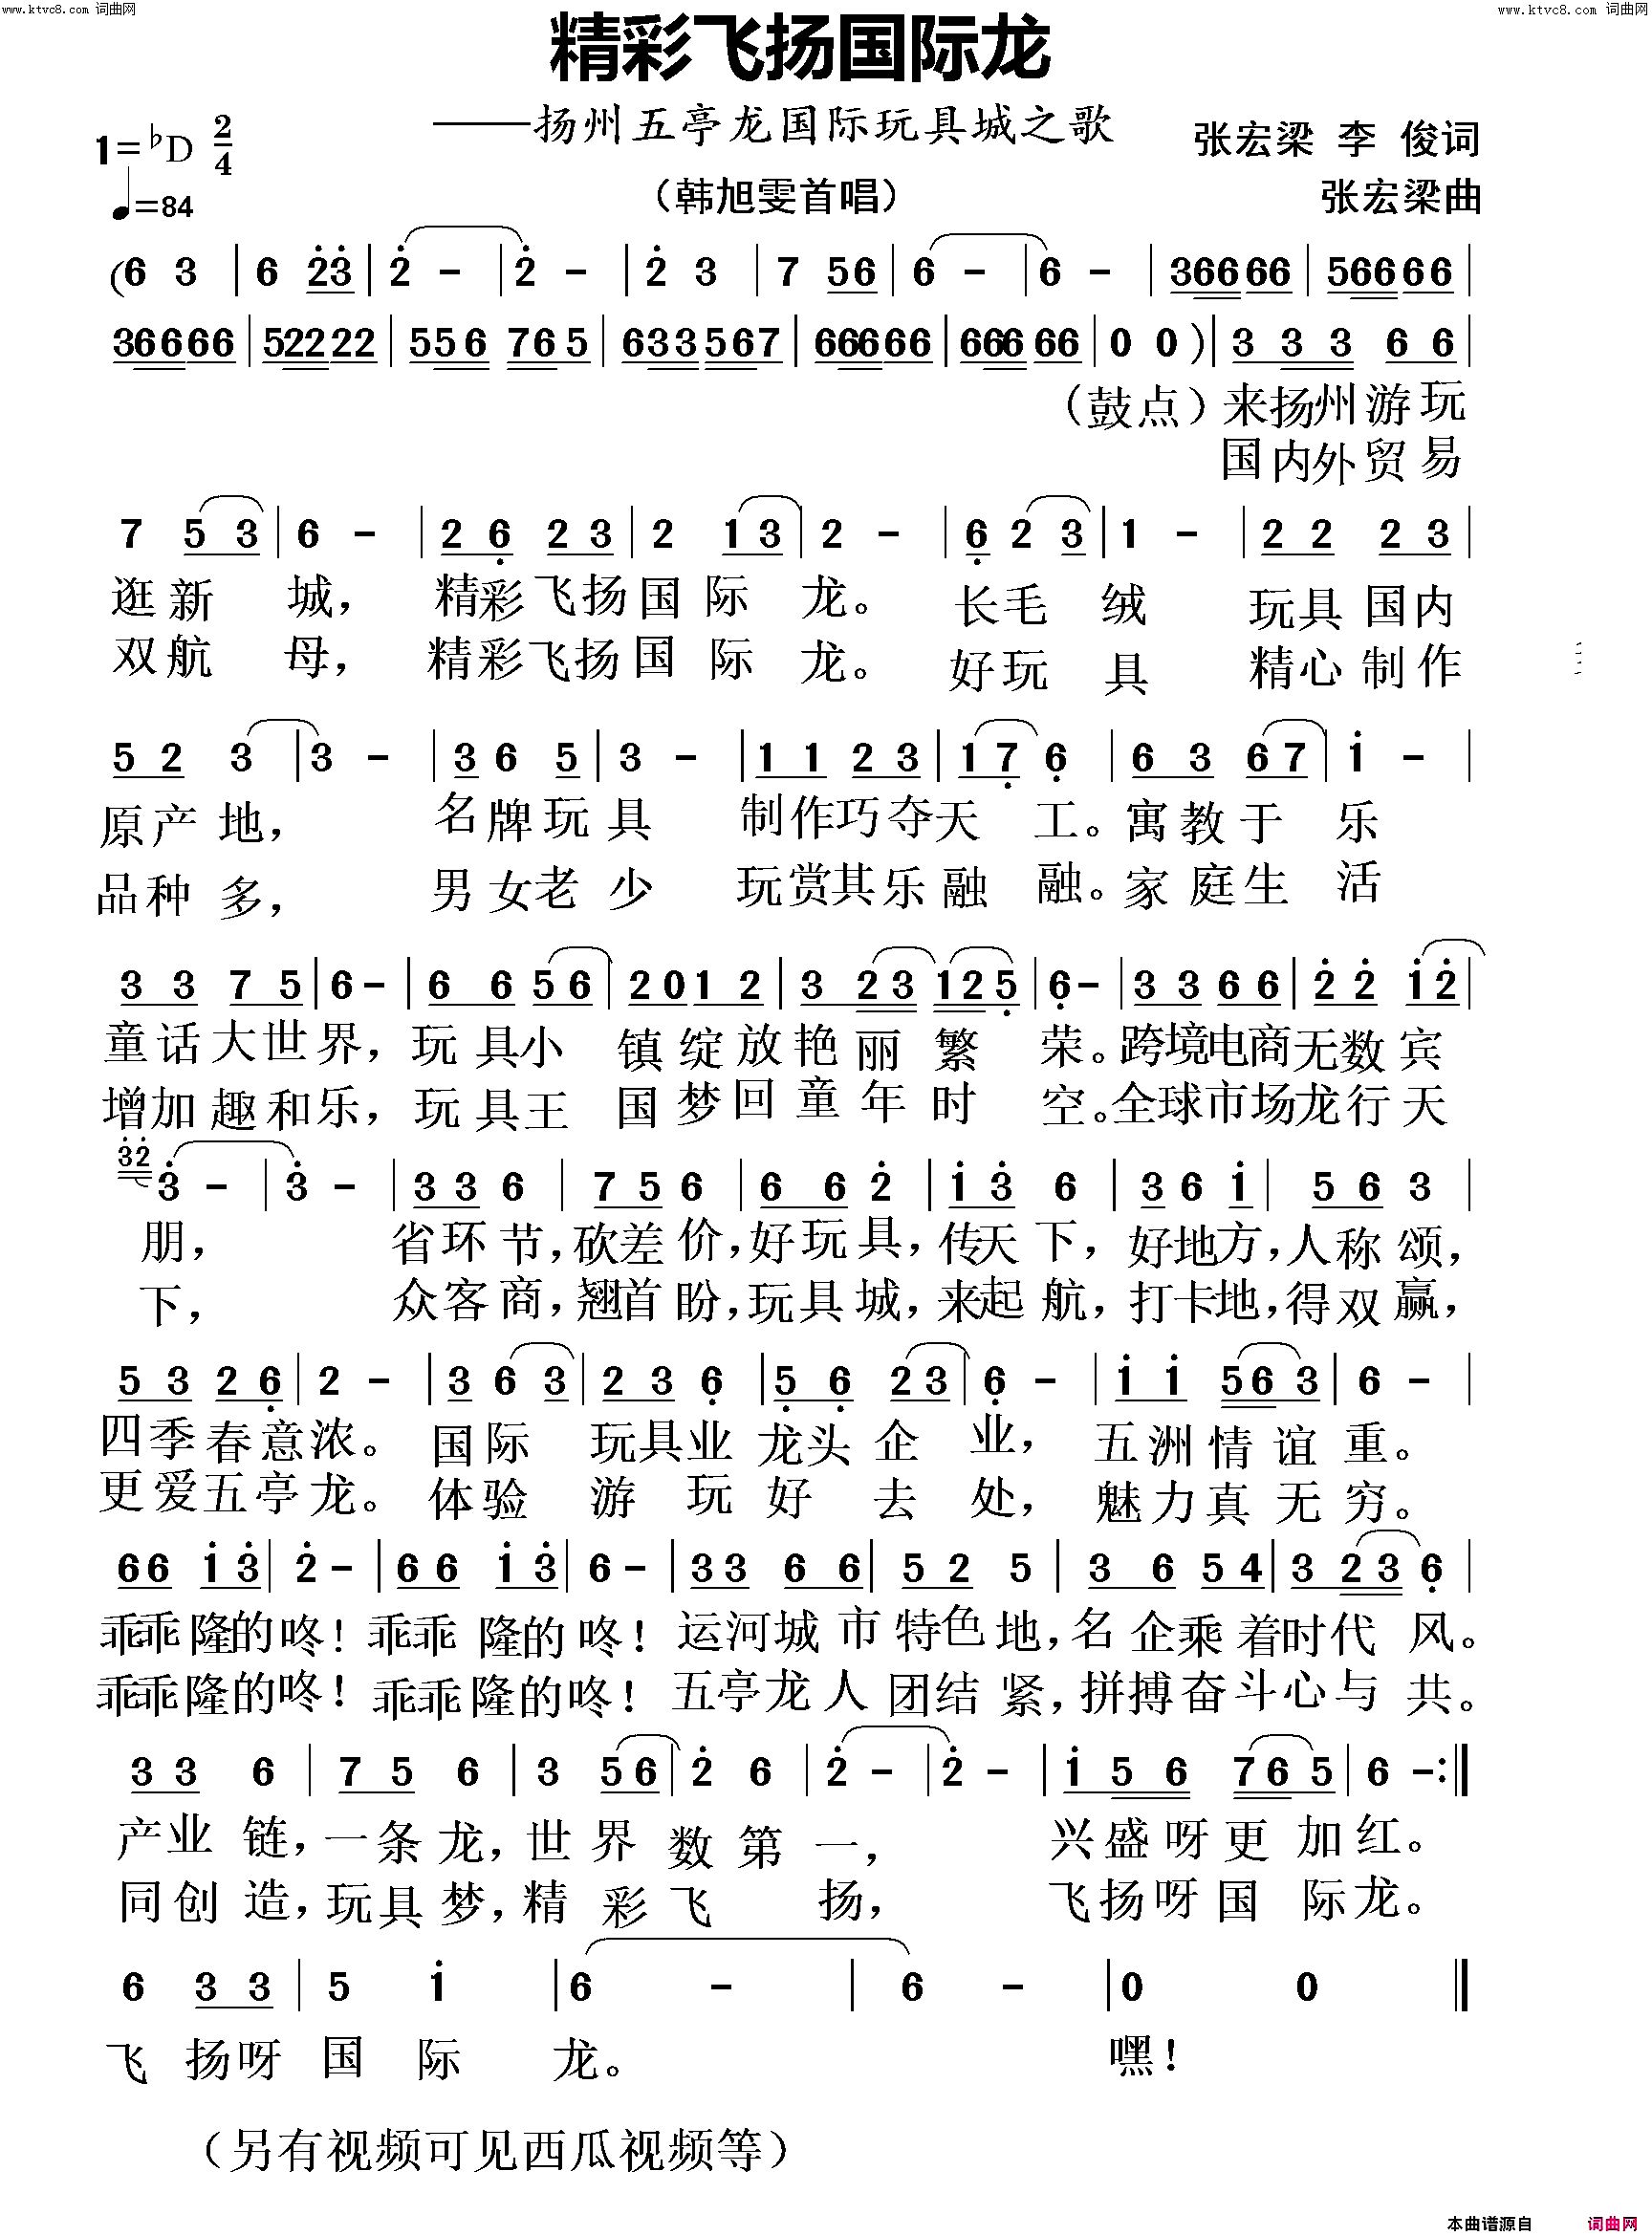 www.ktvc8.com 词曲网
www.ktvc8.com 词曲网
精彩飞扬国际龙
——扬州五亭龙国际玩具城之歌
1=♭D 2/4
张宏梁 李 俊词
♩=84
（韩旭雯首唱）
张宏梁曲
(6 3 | 6 2̇3̇ | 2̇ - | 2̇ - | 2̇ 3 | 7 56 | 6 - | 6 - | 36666 | 56666 |
36666 | 52222 | 556 765 | 633567 | 66666 | 66666 | 0 0 )| 3 3 3 6 6 |
（鼓点）来扬州游玩
国内外贸易
7 5 3 | 6 - | 2 6̣ 2 3 | 2 13 | 2 - | 6̣ 2 3 | 1 - | 2 2 2 3 |
逛新 城， 精彩飞扬国际 龙。 长毛 绒 玩具国内
双航 母， 精彩飞扬国际 龙。 好玩 具 精心制作
5 2 3 | 3 - | 3 6 5 | 3 - | 1 1 2 3 | 1 7̣ 6̣ | 6 3 6 7 | 1̇ - |
原产地， 名牌玩具 制作巧夺天 工。寓教于 乐
品种多， 男女老少 玩赏其乐融 融。家庭生 活
3 3 7 5 | 6 - | 6 6 5 6 | 2 0 1 2 | 3 2 3 1 2 5̣ | 6̣ - | 3 3 6 6 | 2̇ 2̇ 1̇ 2̇ |
童话大世界，玩具小 镇绽放艳丽繁 荣。跨境电商无数宾
增加趣和乐，玩具王 国梦回童年时 空。全球市场龙行天
3̇2̇ 3̇ - | 3̇ - | 3 3 6 | 7 5 6 | 6 6 2̇ | 1̇ 3̇ 6 | 3 6 1̇ | 5 6 3 |
朋， 省环节，砍差价，好玩具，传天下，好地方，人称颂，
下， 众客商，翘首盼，玩具城，来起航，打卡地，得双赢，
5 3 2 6̣ | 2 - | 3 6 3 | 2 3 6̣ | 5̣ 6̣ 2 3 | 6̣ - | 1̇ 1̇ 5 6 3 | 6 - |
四季春意浓。 国际 玩具业龙头企 业， 五洲情谊重。
更爱五亭龙。 体验 游玩好去 处， 魅力真无穷。
66 1̇3̇ | 2̇ - | 66 1̇3̇ | 6 - | 33 66 | 5 2 5 | 3 6 54 | 3 2 3 6̣ |
乖乖隆的咚！乖乖隆的咚！运河城市特色地，名企乘着时代风。
乖乖隆的咚！乖乖隆的咚！五亭龙人团结紧，拼搏奋斗心与共。
3 3 6 | 7 5 6 | 3 56 | 2̇ 6 | 2̇ - | 2̇ - | 1̇ 5 6 7 6 5 | 6 - :‖
产业链，一条龙，世界数第一， 兴盛呀更加红。
同创造，玩具梦，精彩飞 扬， 飞扬呀国际龙。
6 3 3 | 5 1̇ | 6 - | 6 - | 0 0 ‖
飞扬呀国际 龙。 嘿！
（另有视频可见西瓜视频等）
本曲谱源自 词曲网